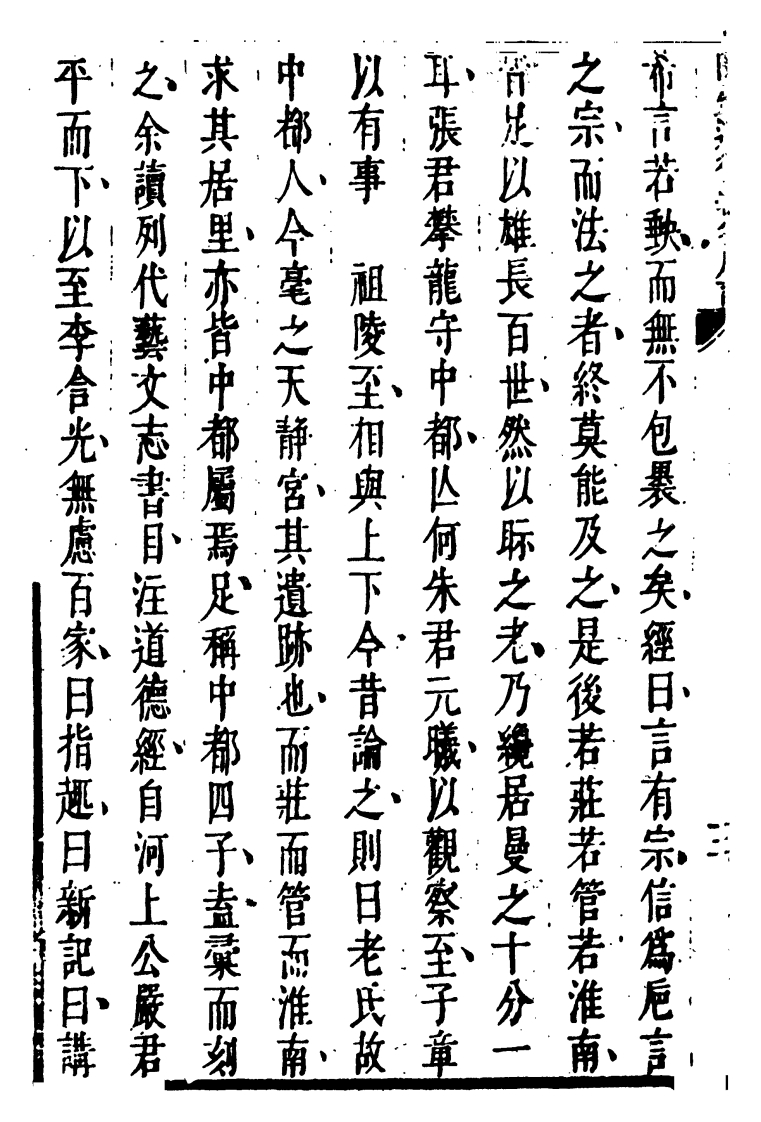 希言若軼而無不包褁之矣經曰言有宗信爲巵言
之宗而法之者終莫能及之是後若莊若管若淮南
皆足以雄長百世然以眎之老乃纔居曼之十分一
耳張君攀龍守中都亾何朱君元曦以觀察至子章
以有事　祖陵至相與上下今昔論之則曰老氏故
中都人今亳之天靜宮其遺跡也而莊而管而淮南
求其居里亦皆中都屬焉足稱中都四子盍彚而刻
之余讀列代藝文志書目注道德經自河上公嚴君
平而下以至李含光無慮百家曰指趣曰新記曰講